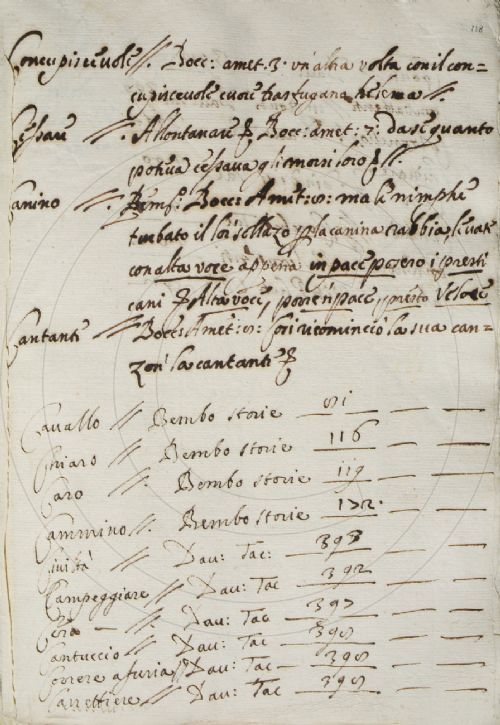 118
Concupiscevole //. Bocc: amet. 3. un'altra volta con il con=
cupiscevole cuore
Cessare //. Allontanare Bocc: amet: 7: da se quanto
poteva cessava gli morsi loro
Canino //. Bocc: Amet: ma le nimphe
turbato il lor sollazo la canina rabbia
con alta voce appena in pace posero i presti
cani Alta voce, porre in pace, presto Veloce
Cantante // Bocc: Amet: ricominciò la sua can=
zon' la cantante
Cavallo // Bembo storie 81
Chiaro // Bembo storie 116
Caro // Bembo storie 119
Cammino //. Bembo storie
Civiltà // Dav: Tac: 393
Campeggiare // Dav: Tac 392
Cera // Dav: Tac 397
Cantuccio // Dav: Tac 398
Correre a furia // Dav: Tac 398
Carrettiere // Dav: Tac 398